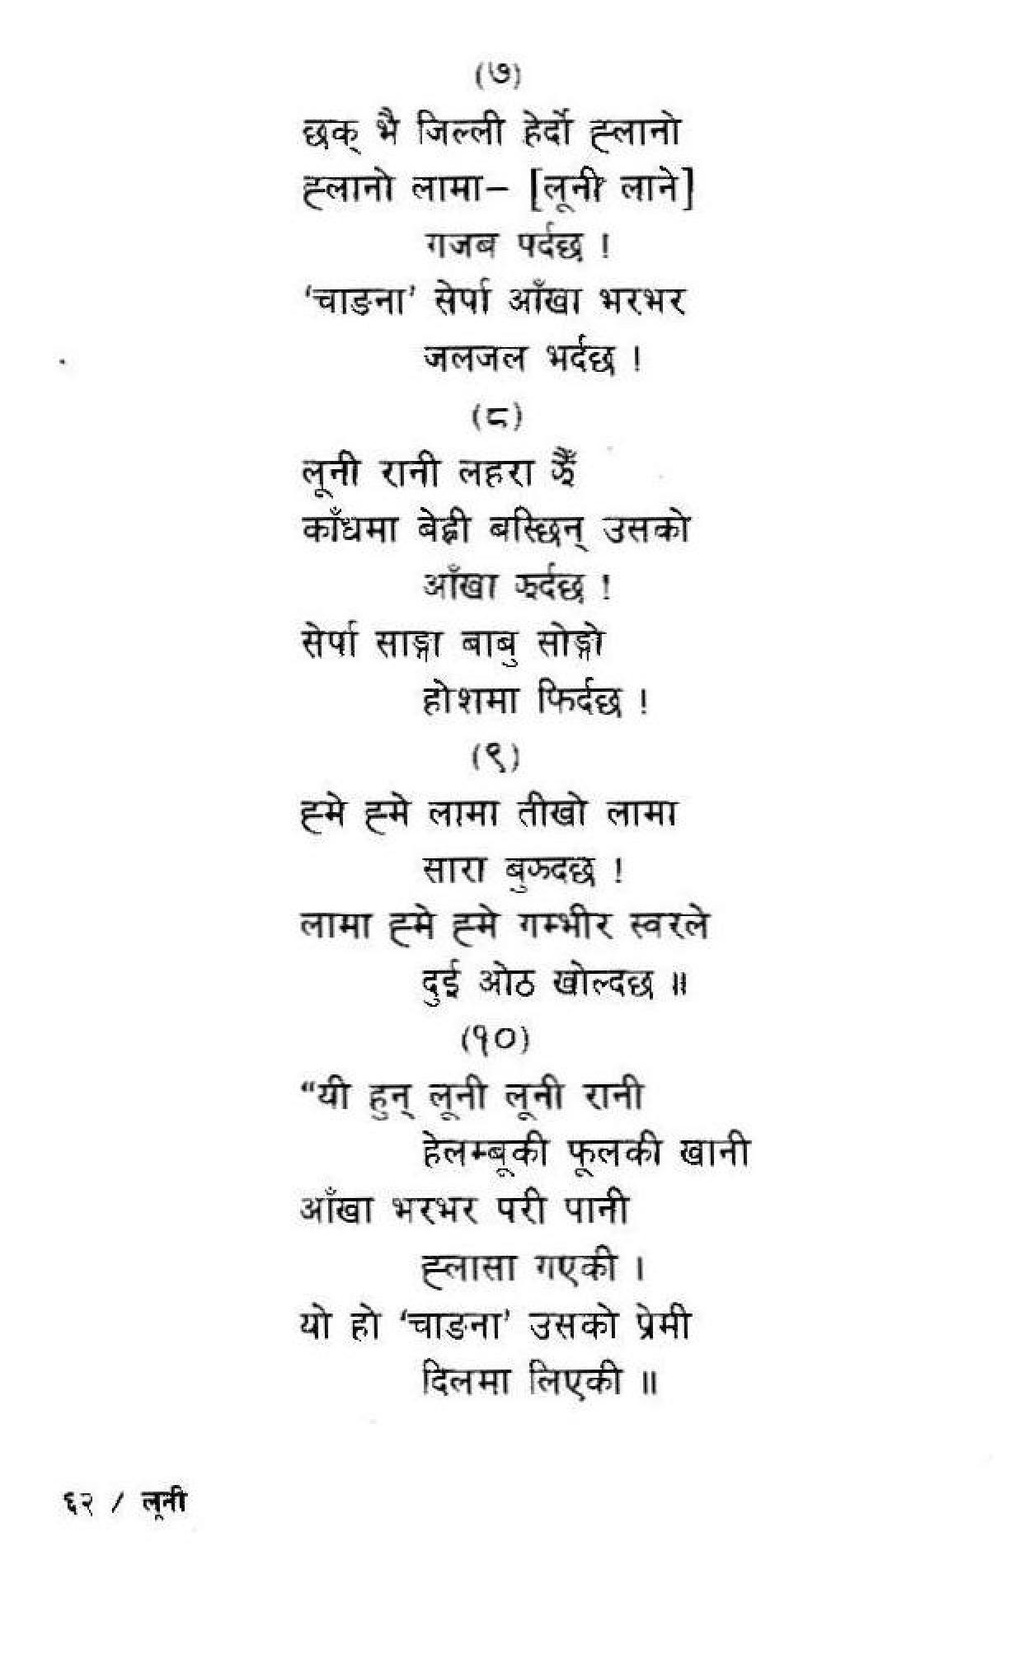 (७)
छक् भै जिल्ली हेर्दो ह्लानो
ह्लानो लामा– [लूनी लाने]
गजब पर्दछ !
‘चाङना’ सेर्पा आँखा भरभर
जलजल भर्दछ !
(८)
लूनी रानी लहरा झैँ
काँधमा बेह्री बस्छिन् उसको
आँखा झर्दछ !
सेर्पा साङ्गा बाबु सोङ्गो
होशमा फिर्दछ !
(९)
ह्मे ह्मे लामा तीखो लामा
सारा बुझ्दछ !
लामा ह्मे ह्मे गम्भीर स्वरले
दुई ओठ खोल्दछ ॥
(१०)
“यी हुन् लूनी लूनी रानी
हेलम्बूकी फूलकी खानी
आँखा भरभर परी पानी
ह्लासा गएकी ।
यो हो ‘चाङना’ उसको प्रेमी
दिलमा लिएकी ॥
६२ / लूनी